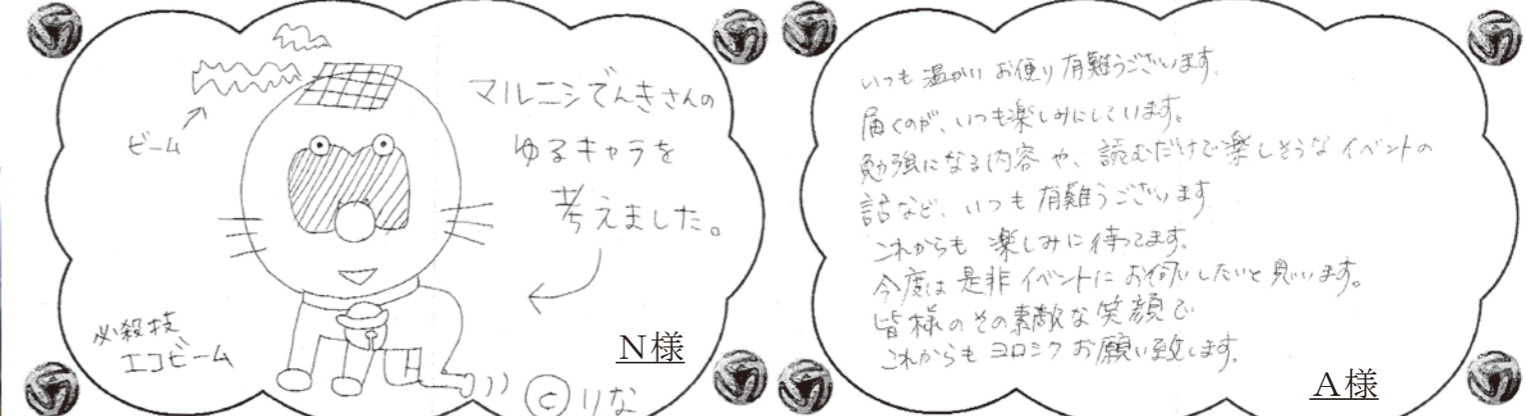 マルニシでんきさんの
ゆるキャラを
考えました。
ビーム
必殺技
エコビーム
N様
©りな
いつも温かいお便り有難うございます。
届くのが、いつも楽しみにしています。
勉強になる内容や、読むだけで楽しそうなイベントの
話など、いつも有難うございます
これからも楽しみに待ってます。
今度は是非イベントにお伺いしたいと思います。
皆様のその素敵な笑顔で
これからもヨロシクお願い致します。
A様